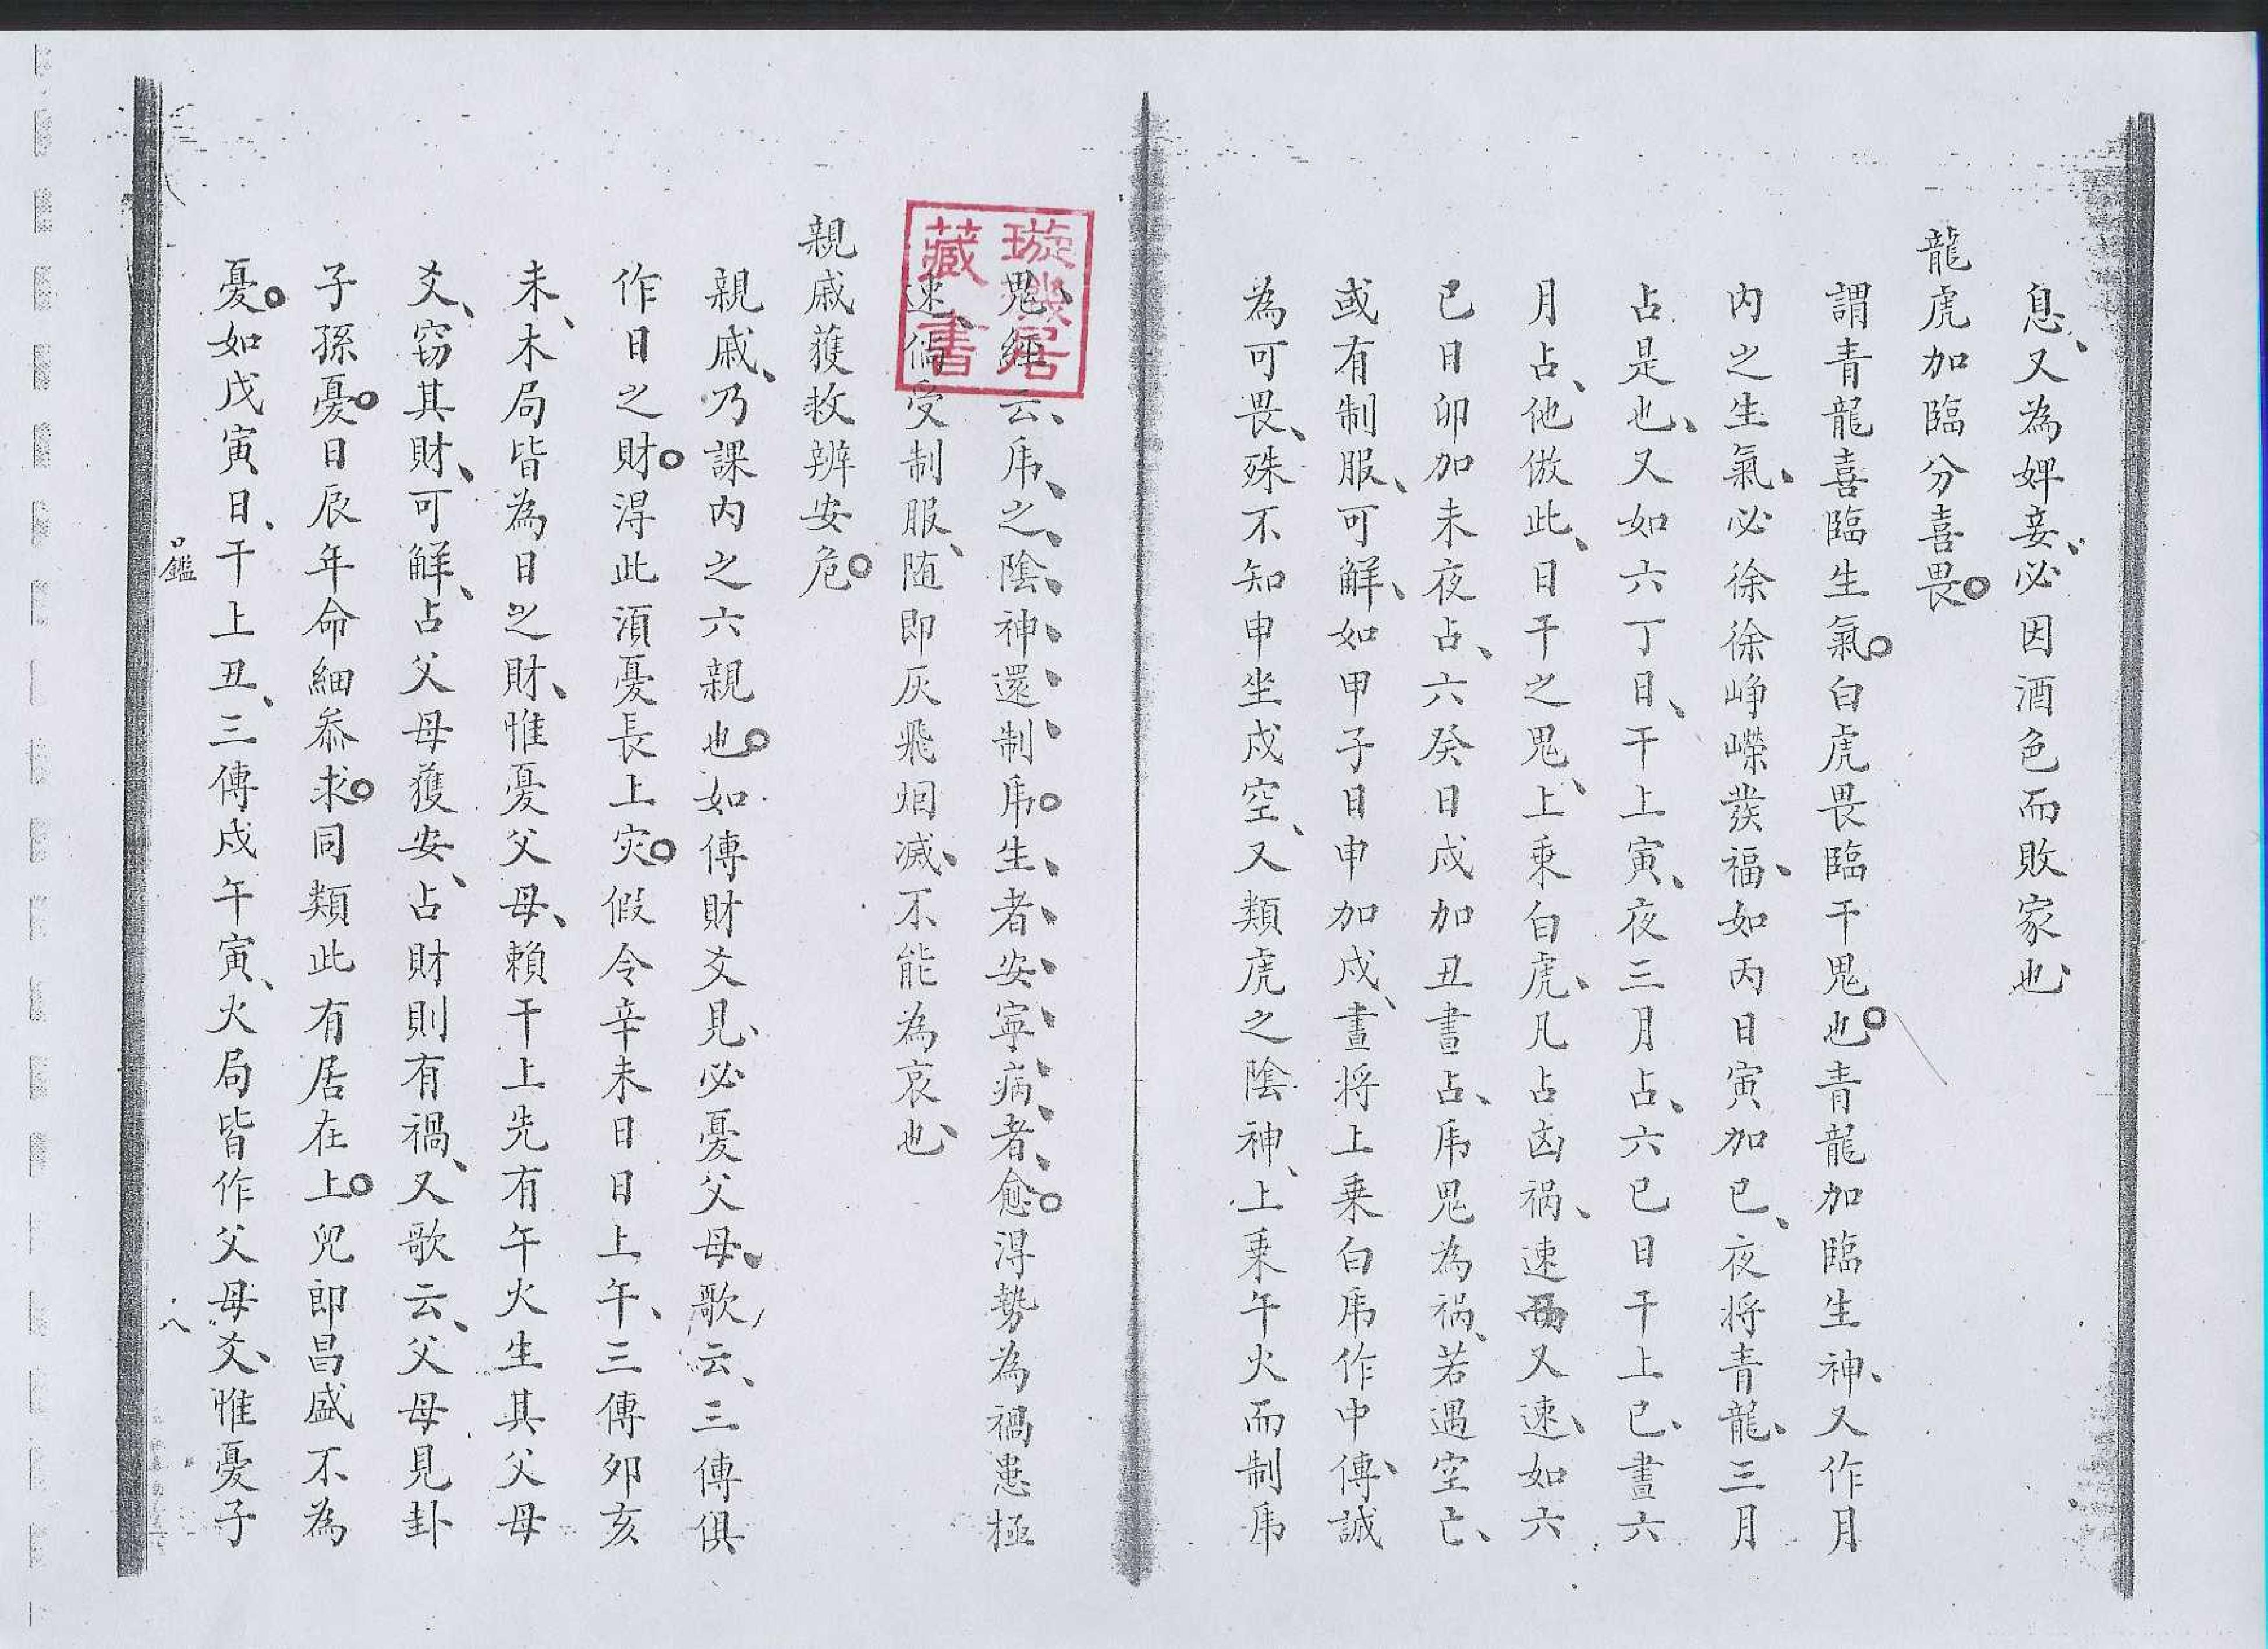 息、又為婢妾、必因酒色而敗家也、
龍虎加臨分喜畏。
謂青龍喜臨生氣。白虎畏臨干鬼也。青龍加臨生神、又作月
内之生氣、必徐徐峥嶸發福、如丙日寅加巳、夜将青龍、三月
占是也、又如六丁日、干上寅、夜三月占、六巳日干上巳、晝六
月占、他倣此、日干之鬼、上乗白虎、凡占凶禍、速又速、如六
巳日卯加未夜占、六癸日戍加丑晝占、虎鬼為禍、若遇空亡、
或有制服、可解、如甲子日申加戍、晝将上乗白虎作中傳、誠
為可畏、殊不知申坐戍空、又類虎之陰神、上乗午火而制虎
鬼、經云、虎之、陰、神、還、制、虎。生、者、安、寧、病、者、愈。淂勢為禍患極
速、倘受制服、随即灰飛烟滅、不能為哀也、
親戚獲救辨安危。
親戚、乃課内之六親也。如傳財爻見、必憂父母、歌云、三傳俱
作日之財。淂此湏憂長上灾。假令辛未日日上午、三傳夘亥
未、木局皆為日之財、惟憂父母、賴干上先有午火生其父母
爻、窃其財、可解、占父母獲安、占財則有禍、又歌云、父母見卦
子孫憂。日辰年命細叅求。同類此有居在上。兒郎昌盛不為
憂。如戊寅日、干上丑、三傳戍午寅、火局皆作父母爻、惟憂子
口鑑
八
璇璣居
藏書